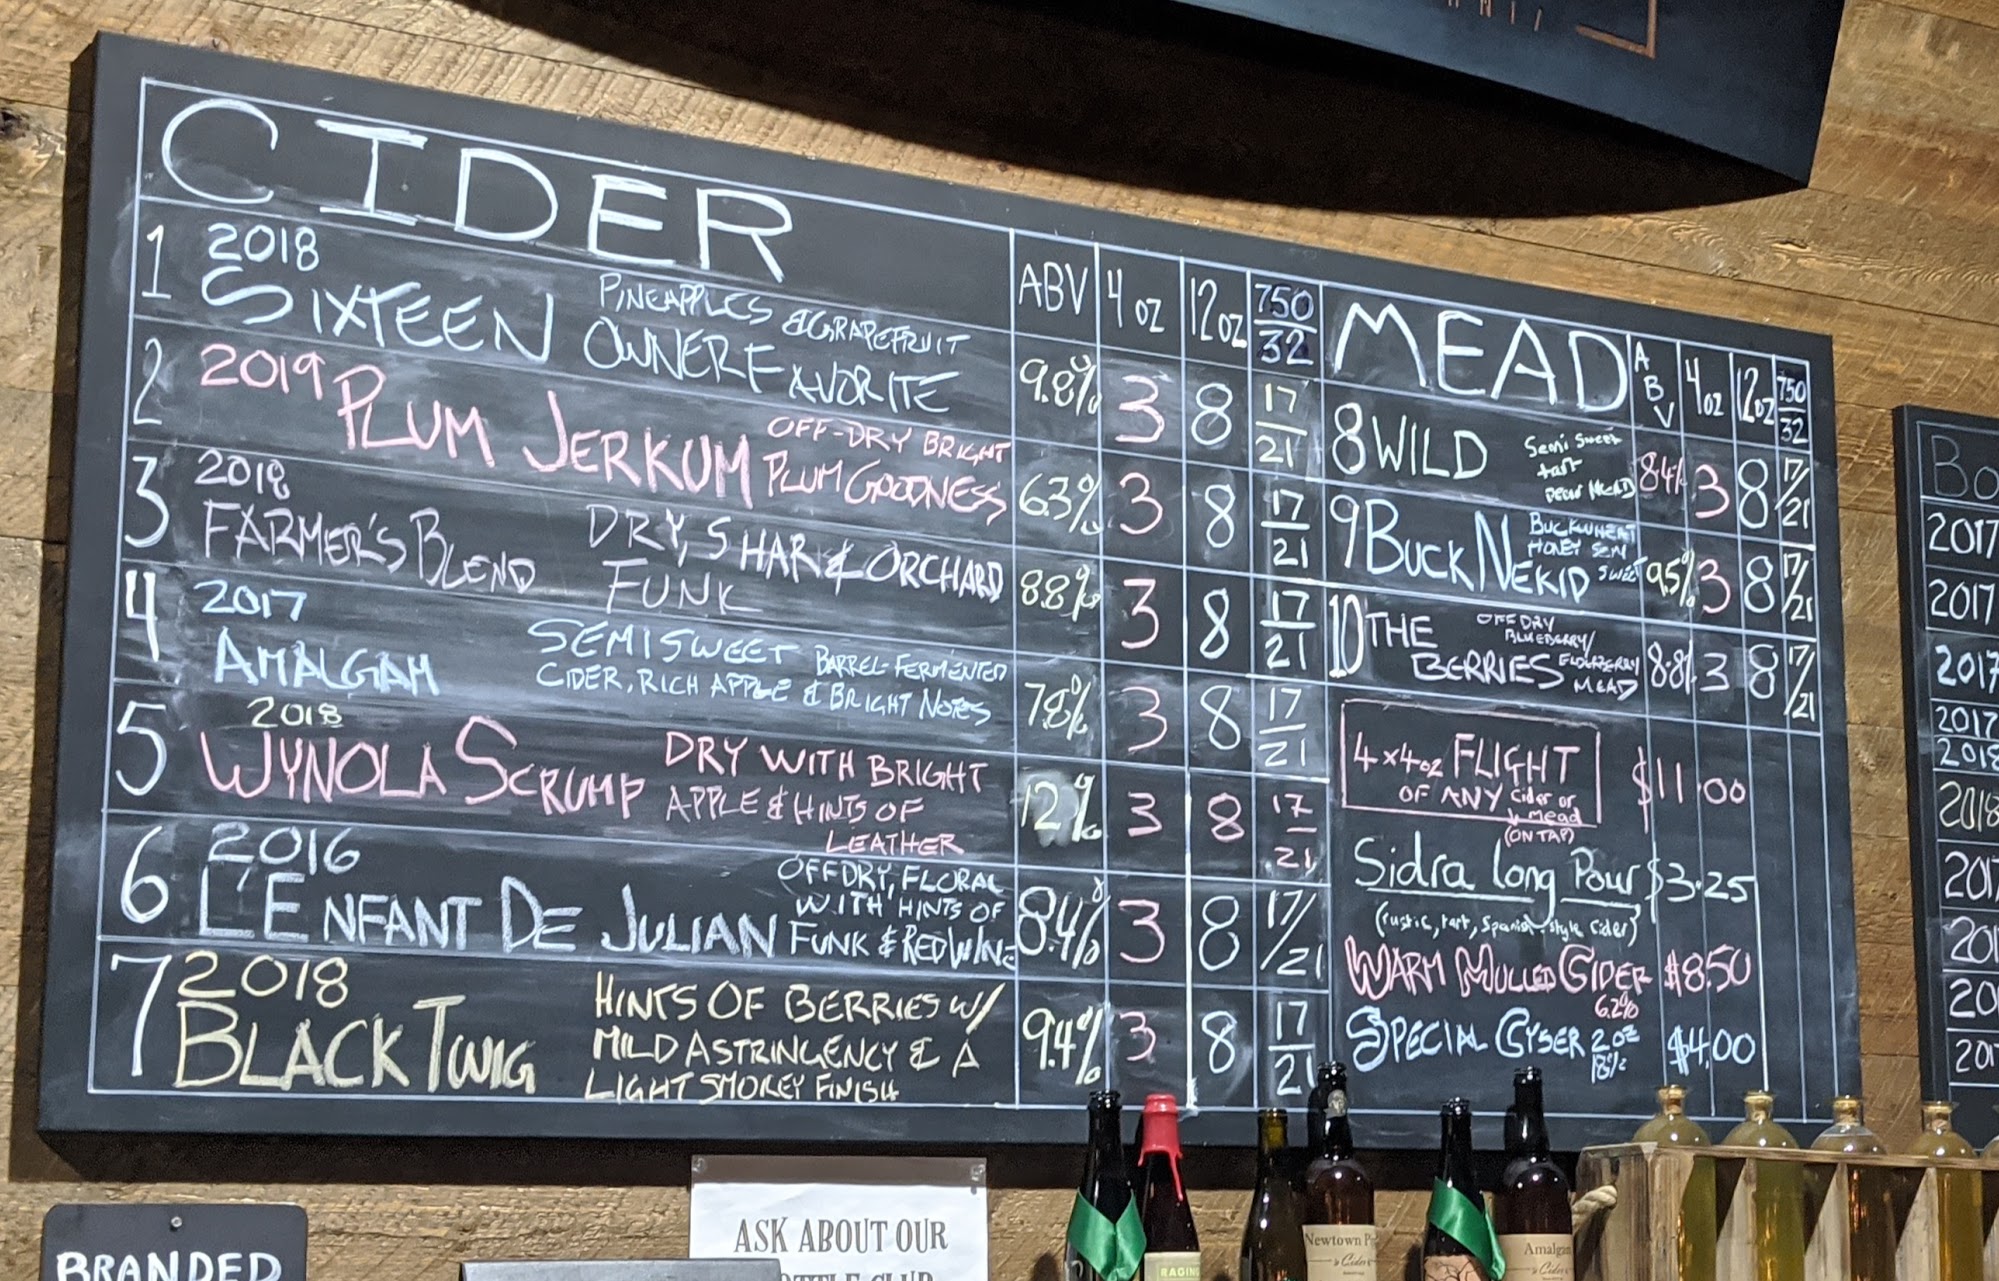 CIDER
ABV 4oz 12oz 750/32
1 2018 SIXTEEN PINEAPPLES & GRAPEFRUIT
OWNER FAVORITE 9.8% 3 8 17/21
2 2019 PLUM JERKUM OFF-DRY BRIGHT
PLUM GOODNESS 6.3% 3 8 17/21
3 2018 FARMER'S BLEND DRY, SHAR & ORCHARD
FUNK 8.8% 3 8 17/21
4 2017 AMALGAM SEMISWEET BARREL-FERMENTED
CIDER, RICH APPLE & BRIGHT NOTES 7.8% 3 8 17/21
5 2018 WYNOLA SCRUMP DRY WITH BRIGHT
APPLE & HINTS OF
LEATHER 12% 3 8 17/21
6 2016 L'ENFANT DE JULIAN OFFDRY, FLORAL
WITH HINTS OF
FUNK & RED WINE 8.4% 3 8 17/21
7 2018 BLACK TWIG HINTS OF BERRIES W/
MILD ASTRINGENCY & A
LIGHT SMOKEY FINISH 9.4% 3 8 17/21
MEAD ABV 4oz 12oz 750/32
8 WILD Semi Sweet
tart
MEAD 8.4% 3 8 17/21
9 BUCK NEKID BUCKWHEAT
HONEY SEMI
SWEET 9.5% 3 8 17/21
10 THE BERRIES OFFDRY
BLUEBERRY/
ELDERBERRY
MEAD 8.8% 3 8 17/21
4x4oz FLIGHT $11.00
OF ANY Cider or
Mead
(ON TAP)
Sidra Long Pour $3.25
(rustic, tart, Spanish style cider)
WARM MULLED CIDER $8.50
6.2%
SPECIAL CYSER 2oz $4.00
18%
Bo
2017
2017
2017
2017
2018
2018
2017
201
201
2017
BRANDED
ASK ABOUT OUR
BOTTLE CLUB
RAGING
Newtown P
Cider
Amalga
Cider